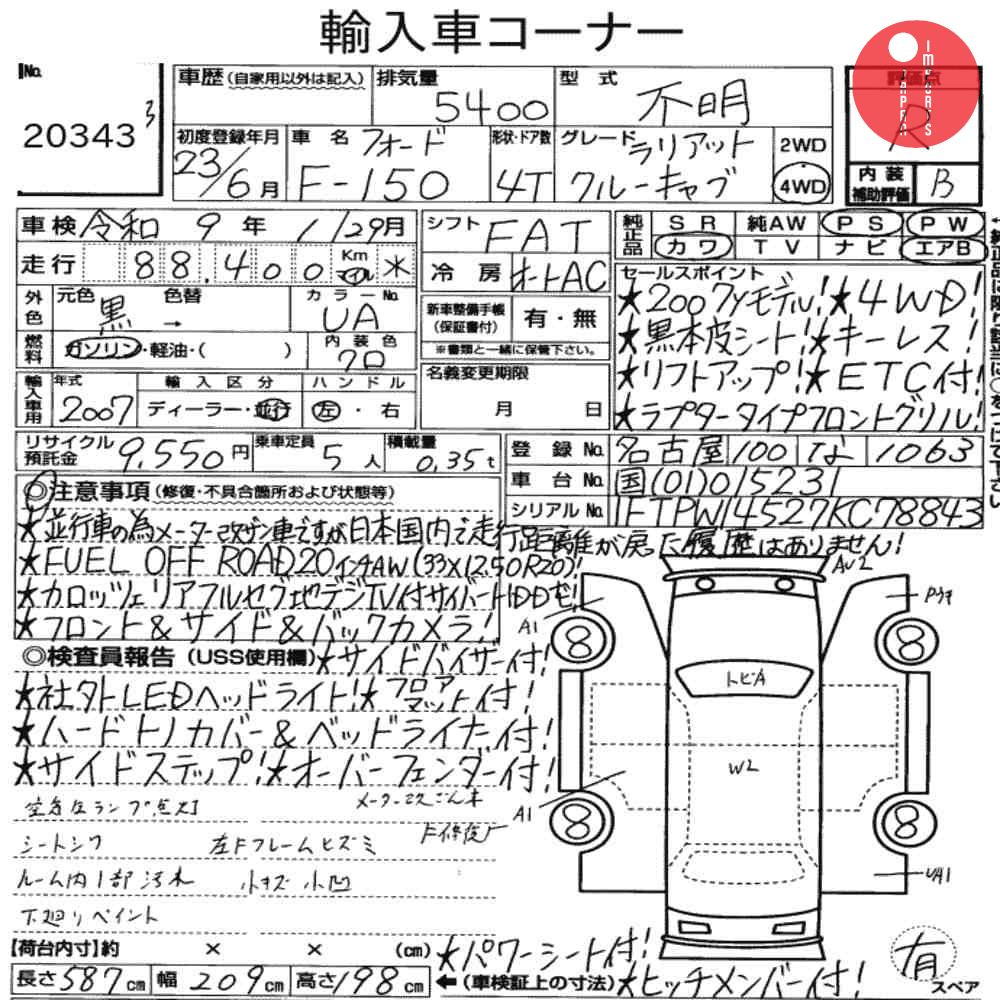 輸入車コーナー
JAPAN IMPORTS
No. 20343 3
車歴(自家用以外は記入) 排気量 5400 型式 不明 評価点 R
初度登録年月 23/6月 車名 フォード F-150 形状・ドア数 4T グレード ラリアット クルーキャブ 2WD 4WD 内装補助評価 B
車検 令和 9年 1/29月 シフト FAT 純正品 SR 純AW PS PW
走行 88,400 Km マイル ※ 冷房 オートAC カワ TV ナビ エアB
外色 元色 黒 → 色替 カラーNo. UA 新車整備手帳(保証書付) 有・無 ※書類と一緒に保管下さい。
燃料 ガソリン・軽油・( ) 内装色 クロ 名義変更期限 月 日
輸入車用 年式 2007 輸入区分 ディーラー・並行 ハンドル 左・右
セールスポイント
★2007yモデル!★4WD!
★黒本皮シート!★キーレス!
★リフトアップ!★ETC付!
★ラプタータイプフロントグリル!
リサイクル預託金 9,550円 乗車定員 5人 積載量 0.35t
登録No. 名古屋 100 な 1063
車台No. 国(01)015231
シリアルNo. 1FTPW14527KC78843
◎注意事項(修復・不具合箇所および状態等)
★並行車の為メーター改ザン車ですが日本国内で走行距離が戻った履歴はありません!
★FUEL OFF ROAD20インチAW(33X12.50R20)!
★カロッツェリアフルセグ地デジTV付サイバーHDDナビ!
★フロント&サイド&バックカメラ!
◎検査員報告(USS使用欄)★サイドバイザー付!
★社外LEDヘッドライト!★フロアマット付!
★ハードトノカバー&ベッドライナー付!
★サイドステップ!★オーバーフェンダー付!
空気圧ランプ点灯 メーター改ざん車
シートシワ 左Fフレームヒズミ F修復
ルーム内1部汚れ 小キズ 小凹
下廻りペイント
AW2
A1
8 8
トビA
W2
A1
8 8
UA1
【荷台内寸】約 × × (cm)
★パワーシート付!
長さ587cm 幅209cm 高さ198cm ←(車検証上の寸法)★ヒッチメンバー付!
有 スペア